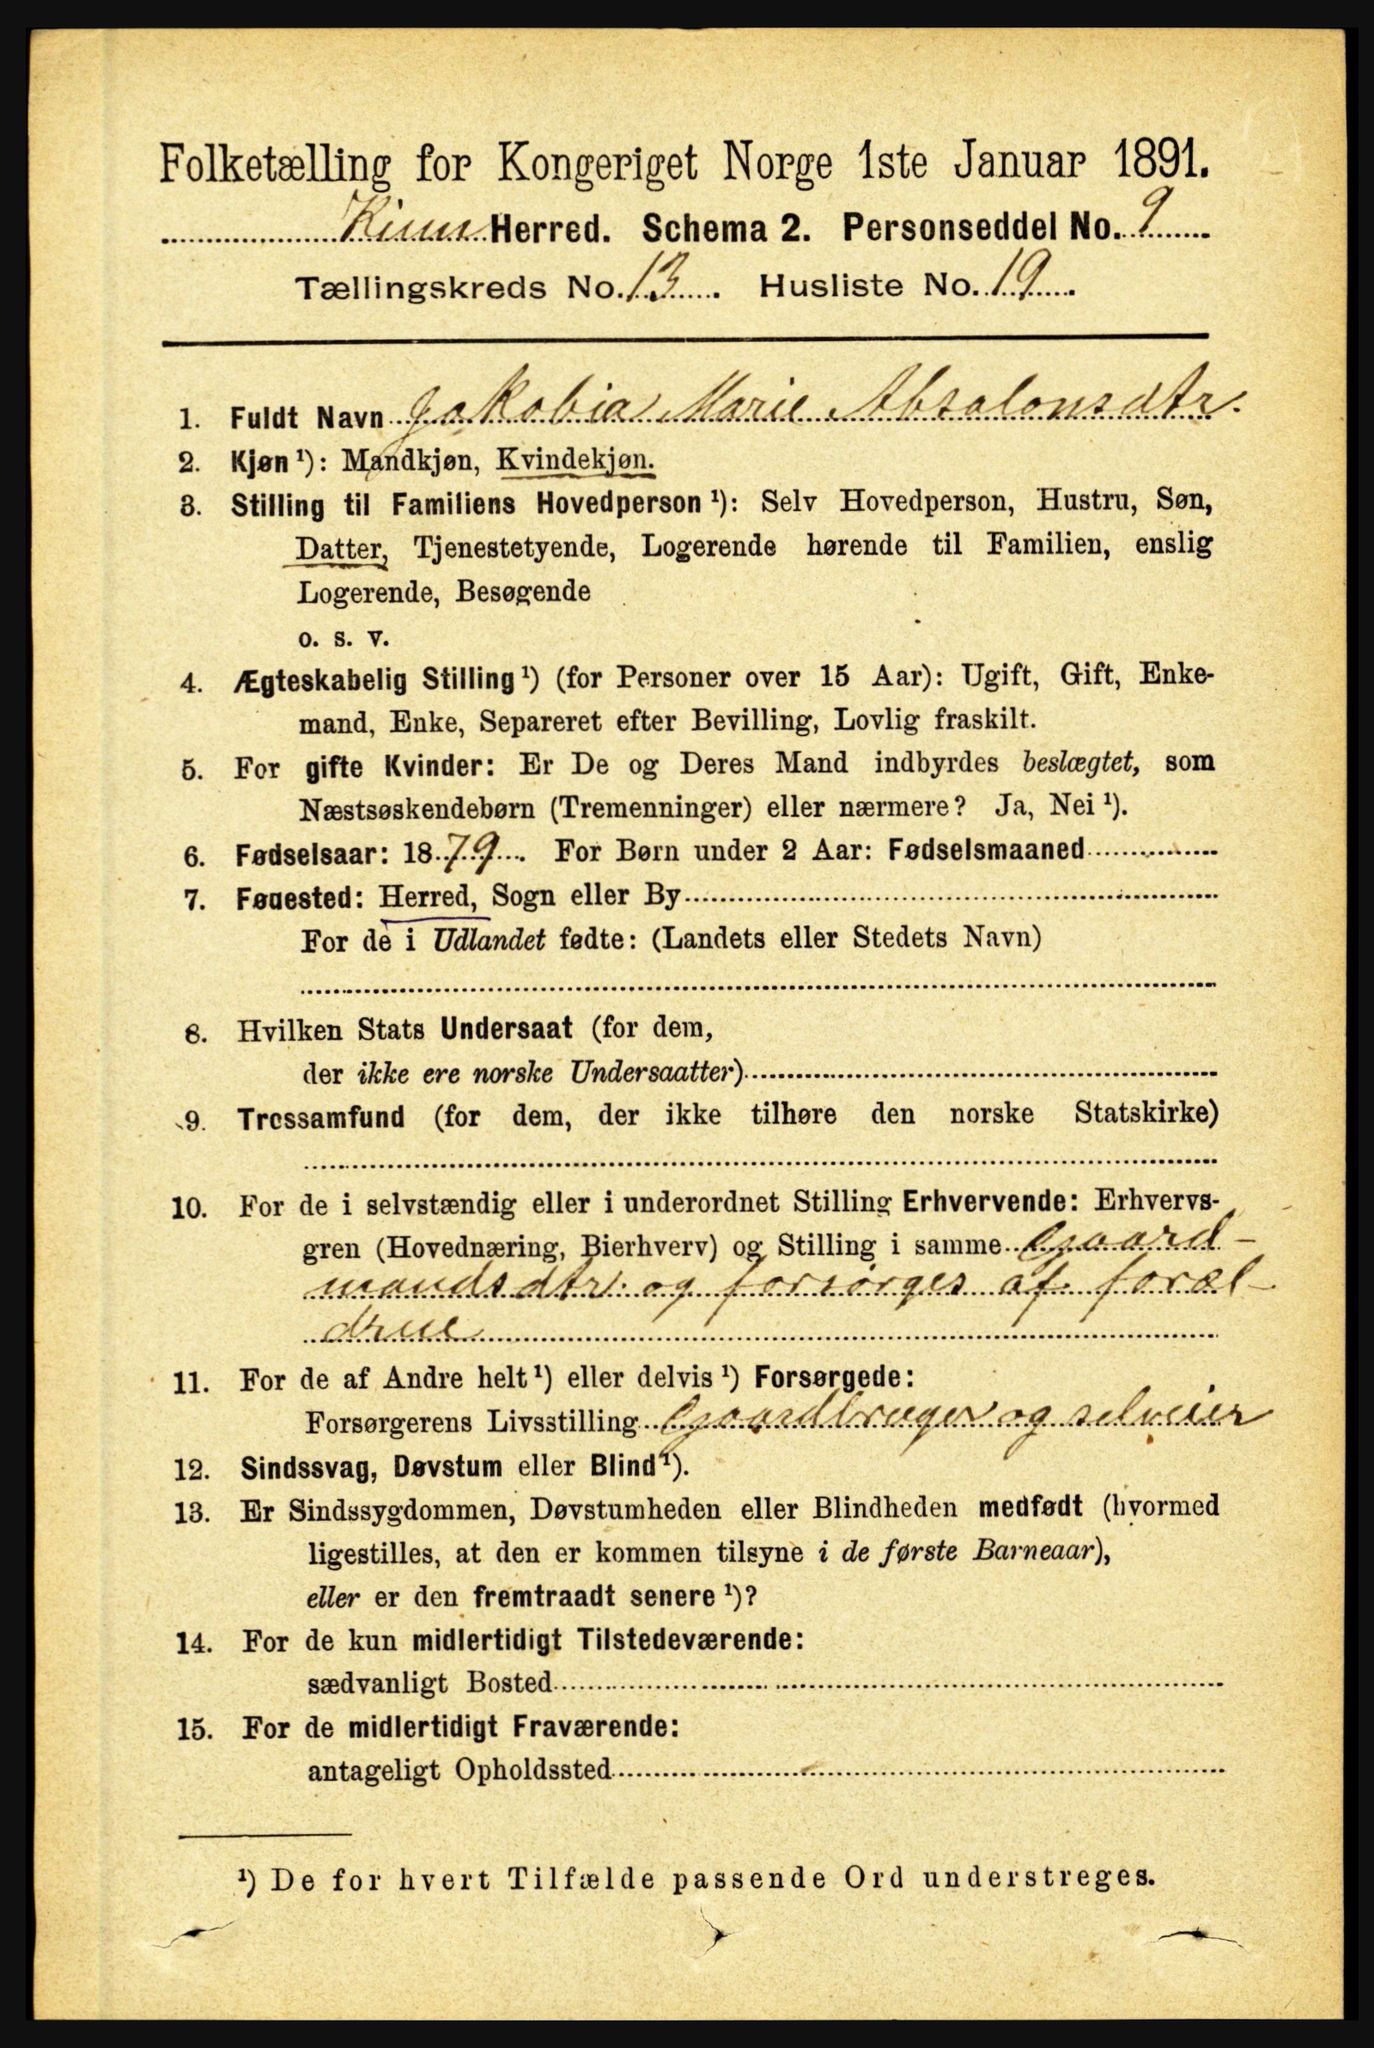 Folketælling for Kongeriget Norge 1ste Januar 1891.
Kinn Herred. Schema 2. Personseddel No. 9
Tællingskreds No. 13. Husliste No. 19
1. Fuldt Navn Jakobia Marie Absalonsdtr.
2. Kjøn¹): Mandkjøn, Kvindekjøn.
3. Stilling til Familiens Hovedperson¹): Selv Hovedperson, Hustru, Søn,
Datter, Tjenestetyende, Logerende hørende til Familien, enslig
Logerende, Besøgende
o. s. v.
4. Ægteskabelig Stilling¹) (for Personer over 15 Aar): Ugift, Gift, Enke-
mand, Enke, Separeret efter Bevilling, Lovlig fraskilt.
5. For gifte Kvinder: Er De og Deres Mand indbyrdes beslægtet, som
Næstsøskendebørn (Tremenninger) eller nærmere? Ja, Nei¹).
6. Fødselsaar: 1879. For Børn under 2 Aar: Fødselsmaaned
7. Fødested: Herred, Sogn eller By
For de i Udlandet fødte: (Landets eller Stedets Navn)
8. Hvilken Stats Undersaat (for dem,
der ikke ere norske Undersaatter)
9. Trossamfund (for dem, der ikke tilhøre den norske Statskirke)
10. For de i selvstændig eller i underordnet Stilling Erhvervende: Erhvervs-
gren (Hovednæring, Bierhverv) og Stilling i samme Gaard-
mandsdtr. og forsørges af foræl-
drne
11. For de af Andre helt¹) eller delvis¹) Forsørgede:
Forsørgerens Livsstilling Gaardbruger og selveier
12. Sindssvag, Døvstum eller Blind¹).
13. Er Sindssygdommen, Døvstumheden eller Blindheden medfødt (hvormed
ligestilles, at den er kommen tilsyne i de første Barneaar),
eller er den fremtraadt senere¹)?
14. For de kun midlertidigt Tilstedeværende:
sædvanligt Bosted
15. For de midlertidigt Fraværende:
antageligt Opholdssted
¹) De for hvert Tilfælde passende Ord understreges.